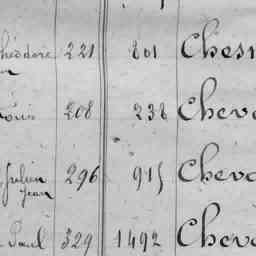 héodore 221 801 Ches
Louis 208 238 Cheva
Julien 296 915 Cheva
Jean
Paul 329 1492 Cheva